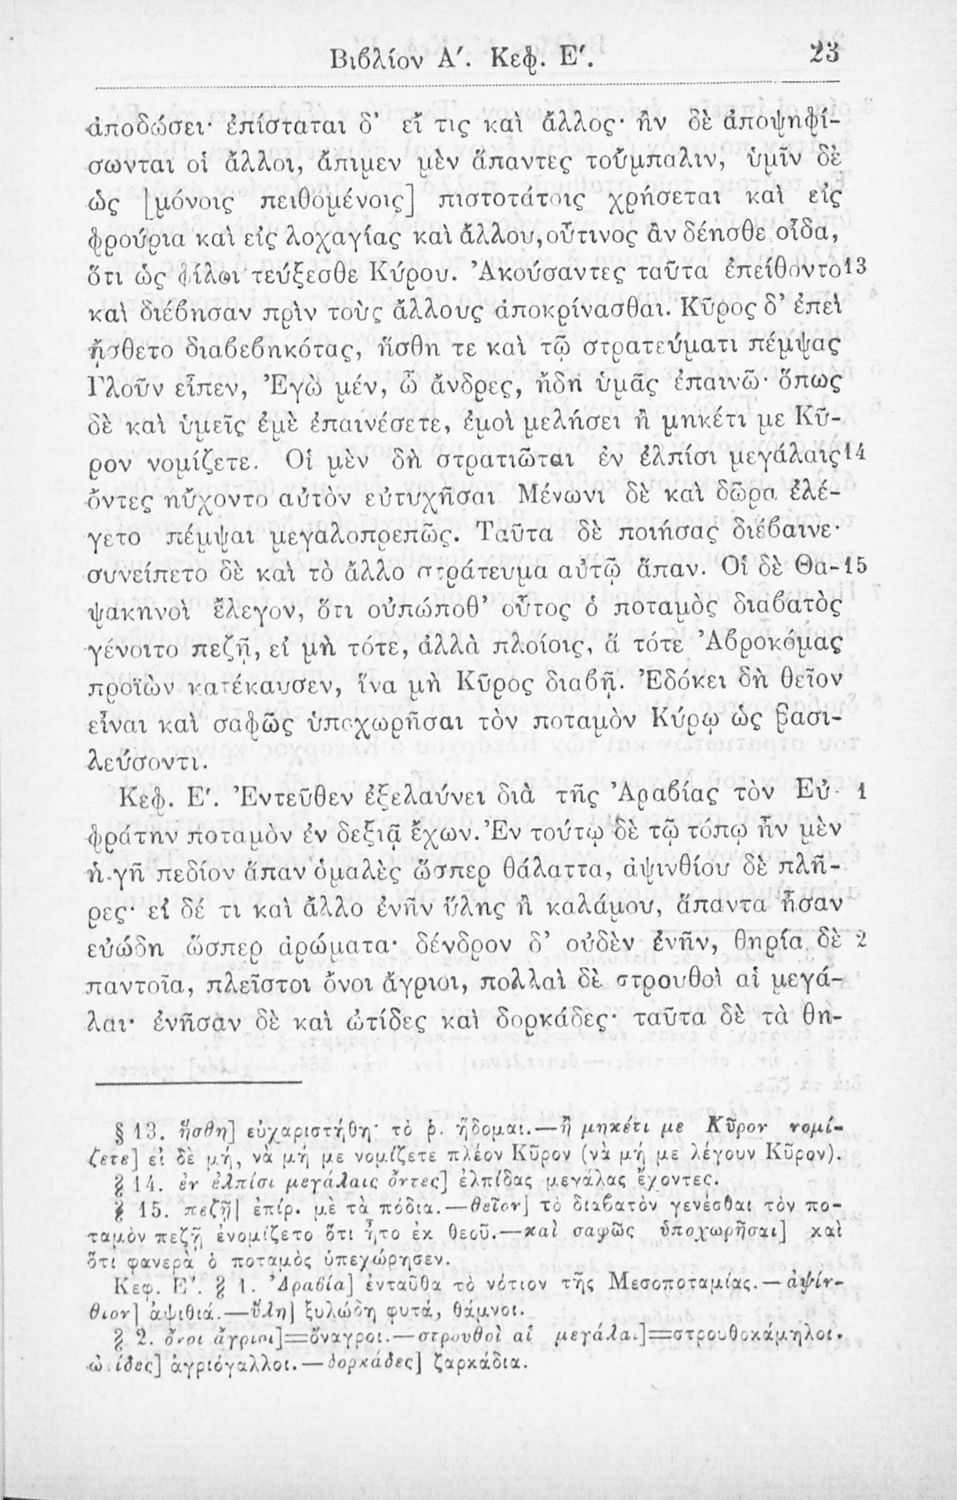 Βιβλίον Α΄. Κεφ. Ε΄. 23
ἀποδώσει· ἐπίσταται δ' εἴ τις καὶ ἄλλος· ἢν δὲ ἀποψηφί-
σωνται οἱ ἄλλοι, ἄπιμεν μὲν ἅπαντες τοὔμπαλιν, ὑμῖν δὲ
ὡς [μόνοις πειθομένοις] πιστοτάτοις χρήσεται καὶ εἰς
φρούρια καὶ εἰς λοχαγίας καὶ ἄλλου, οὗτινος ἂν δέησθε οἶδα,
ὅτι ὡς φίλοι τεύξεσθε Κύρου. Ἀκούσαντες ταῦτα ἐπείθοντο 13
καὶ διέβησαν πρὶν τοὺς ἄλλους ἀποκρίνασθαι. Κῦρος δ' ἐπεὶ
ᾔσθετο διαβεβηκότας, ἥσθη τε καὶ τῷ στρατεύματι πέμψας
Γλοῦν εἶπεν, Ἐγὼ μέν, ὦ ἄνδρες, ἤδη ὑμᾶς ἐπαινῶ· ὅπως
δὲ καὶ ὑμεῖς ἐμὲ ἐπαινέσετε, ἐμοὶ μελήσει ἢ μηκέτι με Κῦ-
ρον νομίζετε. Οἱ μὲν δὴ στρατιῶται ἐν ἐλπίσι μεγάλαις 14
ὄντες ηὔχοντο αὐτὸν εὐτυχῆσαι Μένωνι δὲ καὶ δῶρα ἐλέ-
γετο πέμψαι μεγαλοπρεπῶς. Ταῦτα δὲ ποιήσας διέβαινε·
συνείπετο δὲ καὶ τὸ ἄλλο στράτευμα αὐτῷ ἅπαν. Οἱ δὲ Θα- 15
ψακηνοὶ ἔλεγον, ὅτι οὐπώποθ' οὗτος ὁ ποταμὸς διαβατὸς
γένοιτο πεζῇ, εἰ μὴ τότε, ἀλλὰ πλοίοις, ἃ τότε Ἀβροκόμας
προϊὼν κατέκαυσεν, ἵνα μὴ Κῦρος διαβῇ. Ἐδόκει δὴ θεῖον
εἶναι καὶ σαφῶς ὑποχωρῆσαι τὸν ποταμὸν Κύρῳ ὡς βασι-
λεύσοντι.
Κεφ. Ε΄. Ἐντεῦθεν ἐξελαύνει διὰ τῆς Ἀραβίας τὸν Εὐ- 1
φράτην ποταμὸν ἐν δεξιᾷ ἔχων. Ἐν τούτῳ δὲ τῷ τόπῳ ἦν μὲν
ἡ γῆ πεδίον ἅπαν ὁμαλὲς ὥσπερ θάλαττα, ἀψινθίου δὲ πλῆ-
ρες· εἰ δέ τι καὶ ἄλλο ἐνῆν ὕλης ἢ καλάμου, ἅπαντα ἦσαν
εὐώδη ὥσπερ ἀρώματα· δένδρον δ' οὐδὲν ἐνῆν, θηρία δὲ 2
παντοῖα, πλεῖστοι ὄνοι ἄγριοι, πολλαὶ δὲ στρουθοὶ αἱ μεγά-
λαι· ἐνῆσαν δὲ καὶ ὠτίδες καὶ δορκάδες· ταῦτα δὲ τὰ θη-
§ 13. ἥσθη] εὐχαριστήθη· τὸ ῥ. ἥδομαι.—ἢ μηκέτι με Κῦρον νομί-
ζετε] εἰ δὲ μή, νὰ μή με νομίζετε πλέον Κῦρον (νὰ μή με λέγουν Κῦρον).
§ 14. ἐν ἐλπίσι μεγάλαις ὄντες] ἐλπίδας μεγάλας ἔχοντες.
§ 15. πεζῇ] ἐπίρ. μὲ τὰ πόδια.—θεῖον] τὸ διαβατὸν γενέσθαι τὸν πο-
ταμὸν πεζῇ ἐνομίζετο ὅτι ἦτο ἐκ θεοῦ.—καὶ σαφῶς ὑποχωρῆσαι] καὶ
ὅτι φανερὰ ὁ ποταμὸς ὑπεχώρησεν.
Κεφ. Ε΄. § 1. Ἀραβία] ἐνταῦθα τὸ νότιον τῆς Μεσοποταμίας.—ἀψίν-
θιον] ἀψιθιά.—ὕλη] ξυλώδη φυτά, θάμνοι.
§ 2. ὄνοι ἄγριοι]=ὄναγροι.—στρουθοὶ αἱ μεγάλαι]=στρουθοκάμηλοι.
ὠτίδες] ἀγριόγαλλοι.—δορκάδες] ζαρκάδια.